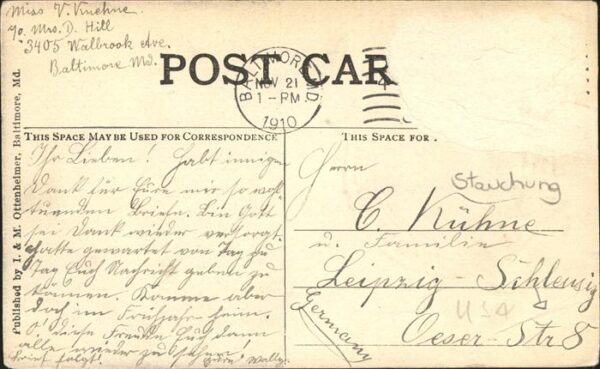 Miss V. Kuehne.
℅ Mrs. D. Hill
3405 Walbrook Ave.
Baltimore Md.
POST CAR
BALTIMORE, MD.
NOV 21
1-PM
1910
4
THIS SPACE MAY BE USED FOR CORRESPONDENCE
THIS SPACE FOR
Published by I. & M. Ottenheimer, Baltimore, Md.
Ihr Lieben! Habt innigen
Dank für Eure mir so wohl
tuenden Briefe. Bin Gott
sei Dank wieder versorgt.
Hatte gewartet von Tag zu
Tag Euch Nachricht geben zu
können. Komme aber
doch im Frühjahr heim.
O! diese Freude Euch dann
alle wieder zu sehen!
Brief folgt! Eure Wally.
Herrn
Stauchung
C. Kühne
u. Familie
Leipzig-Schleusig
USA
Oeser-Str 8
Germany